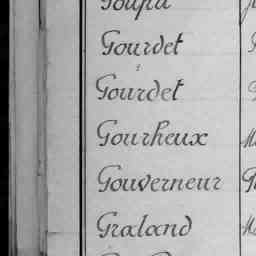 Gourdet
Gourdet
Gourheux
Gouverneur
Graland